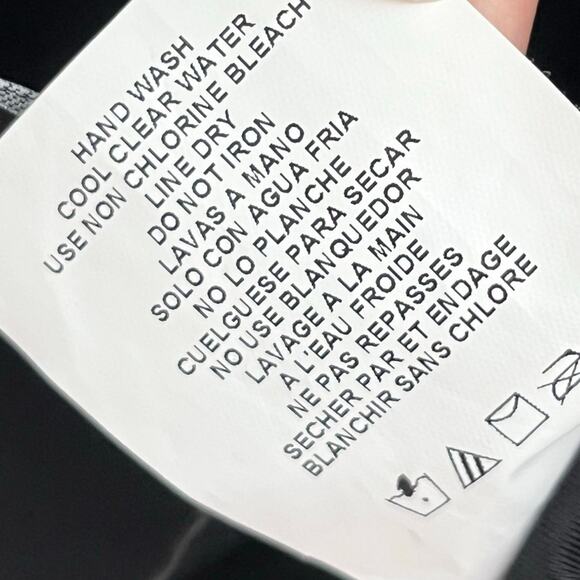 HAND WASH
COOL CLEAR WATER
USE NON CHLORINE BLEACH
LINE DRY
DO NOT IRON
LAVAS A MANO
SOLO CON AGUA FRIA
NO LO PLANCHE
CUELGUESE PARA SECAR
NO USE BLANQUEDOR
LAVAGE A LA MAIN
A L'EAU FROIDE
NE PAS REPASSES
SECHER PAR ET ENDAGE
BLANCHIR SANS CHLORE